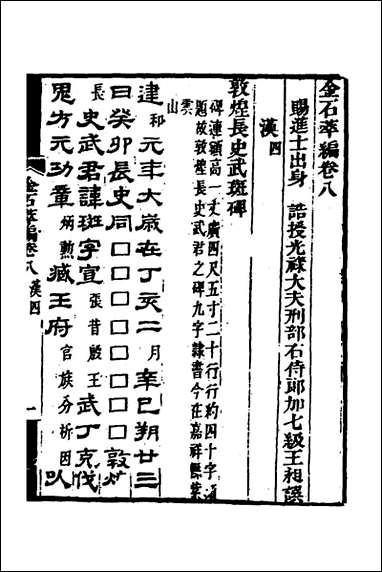 金石萃編卷八
賜進士出身 誥授光祿大夫刑部右侍郎加七級王昶譔
漢四
敦煌長史武斑碑
碑連額高一丈廣四尺五寸二十行行約四十字
題故敦煌長史武君之碑九字隸書今在嘉祥縣紫
雲山
建和元年大歲在丁亥二月辛巳朔廿三
日癸卯長史同□□□□□□□敦煌
長史武君諱斑字宣張昔殷王武丁克伐
鬼方元功章炳勳臧王府官族分析因以
金石萃編卷八 漢四
一